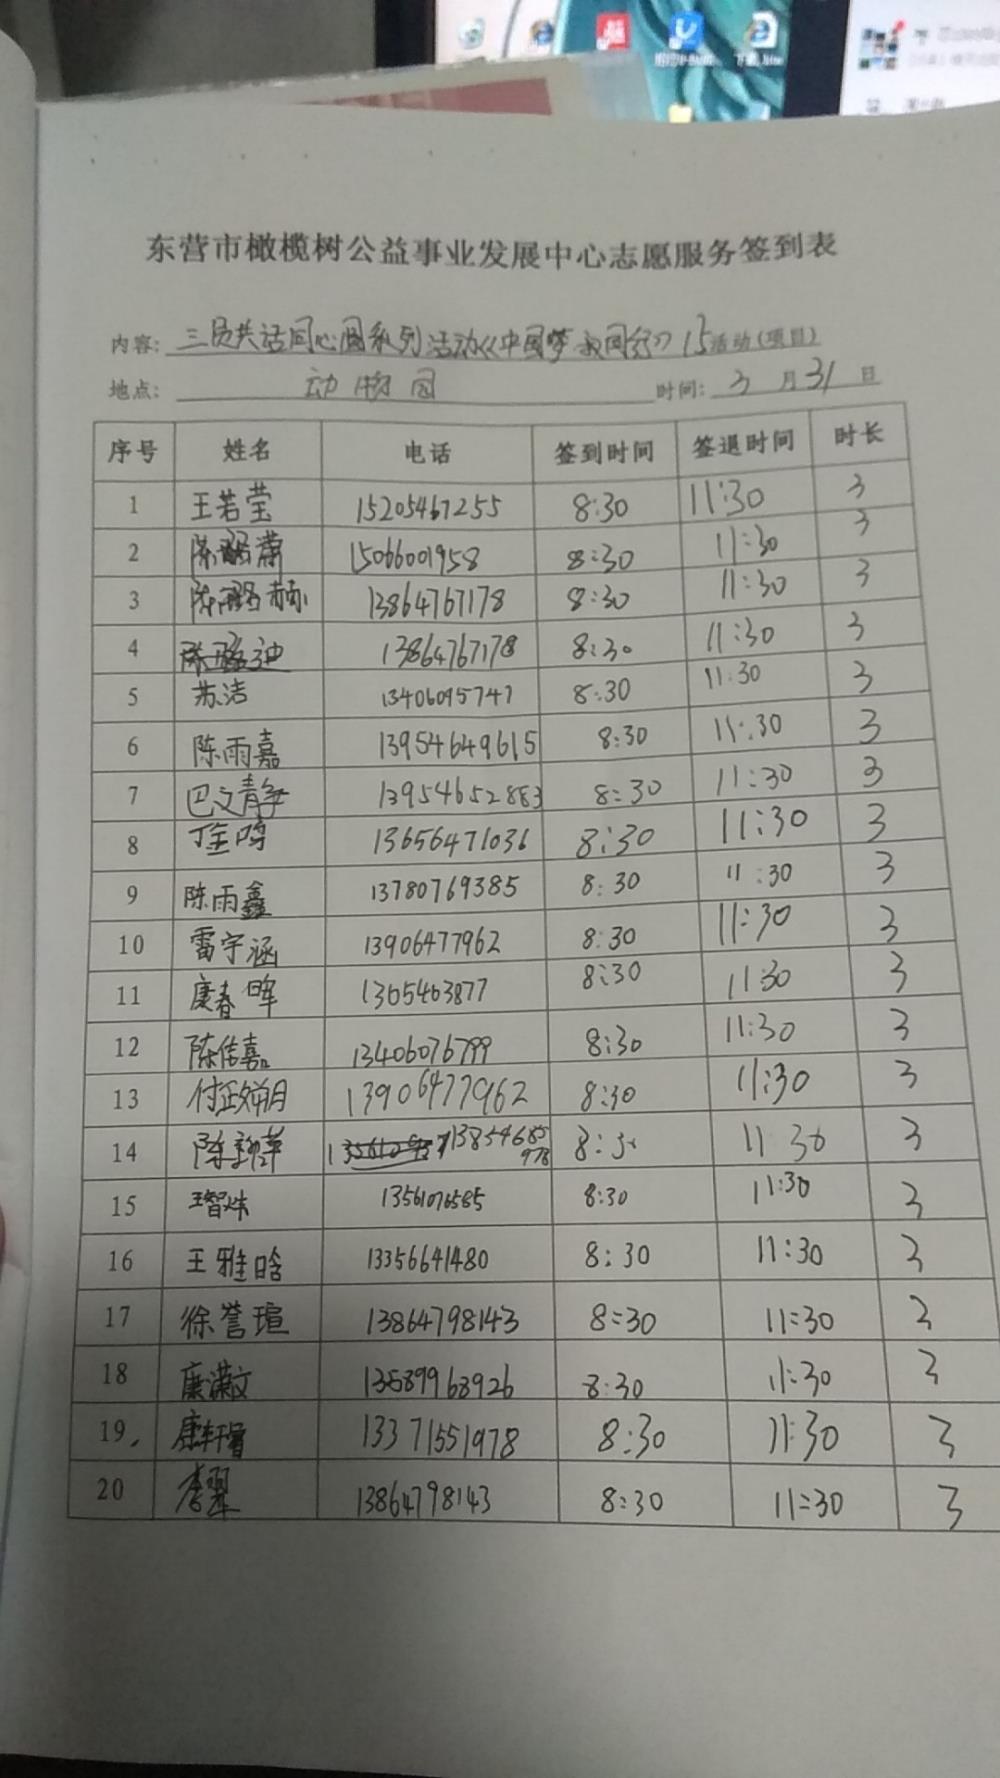 东营市橄榄树公益事业发展中心志愿服务签到表
内容: 三员共话同心圆系列活动《中国梦 我同行》15 活动(项目)
地点: 动物园 时间: 3 月 31 日
序号 姓名 电话 签到时间 签退时间 时长
1 王若莹 15205467255 8:30 11:30 3
2 陈 潇 15066001958 8:30 11:30 3
3 陈 13864767178 8:30 11:30 3
4 陈 迪 13864767178 8:30 11:30 3
5 苏洁 13406095747 8:30 11:30 3
6 陈雨嘉 13954649615 8:30 11:30 3
7 巴文静 13954652883 8:30 11:30 3
8 丁金鸣 13656471036 8:30 11:30 3
9 陈雨鑫 13780769385 8:30 11:30 3
10 雷宇涵 13906477962 8:30 11:30 3
11 康春晖 1365463877 8:30 11:30 3
12 陈佳嘉 13406076799 8:30 11:30 3
13 付正 13906477962 8:30 11:30 3
14 陈 萍 13854685978 8:30 11:30 3
15 王智炜 13561076585 8:30 11:30 3
16 王雅晗 13356641480 8:30 11:30 3
17 徐誉瑄 13864798143 8:30 11:30 3
18 康潇文 13589968926 8:30 11:30 3
19 康轩 13371551978 8:30 11:30 3
20 李翠 13864798143 8:30 11:30 3